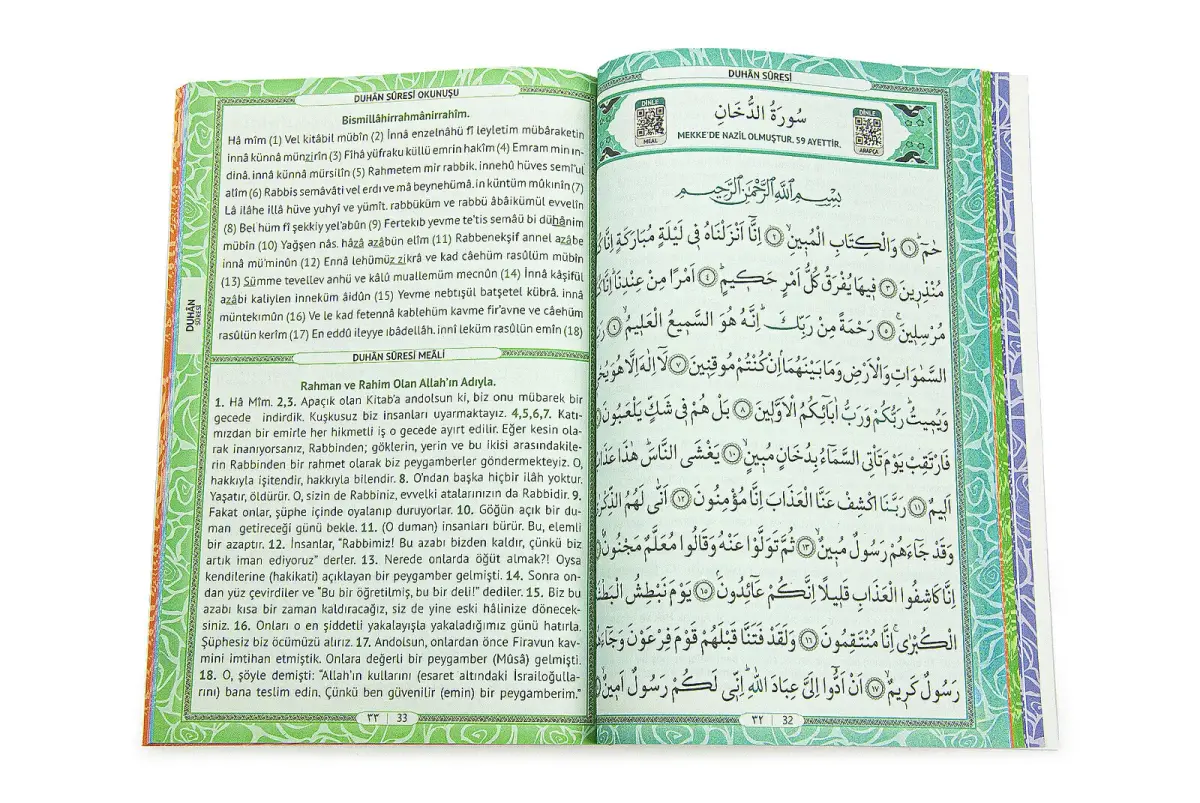 DUHÂN SÛRESİ OKUNUŞU
Bismillâhirrahmânirrahîm.
Hâ mîm (1) Vel kitâbil mübîn (2) İnnâ enzelnâhü fî leyletim mübâraketin
innâ künnâ münzirîn (3) Fîhâ yüfraku küllü emrin hakîm (4) Emram min ın-
dinâ. innâ künnâ mürsilîn (5) Rahmetem mir rabbik. innehû hüves semî'ul
alîm (6) Rabbis semâvâti vel erdı ve mâ beynehümâ. in küntüm mûkınîn (7)
Lâ ilâhe illâ hüve yuhyî ve yümît. rabbüküm ve rabbü âbâikümül evvelîn
(8) Bel hüm fî şekkiy yel'abûn (9) Fertekıb yevme te'tis semâü bi dühânim
mübîn (10) Yağşen nâs. hâzâ azâbün elîm (11) Rabbenekşif annel azâbe
innâ mü'minûn (12) Ennâ lehümüz zikrâ ve kad câehüm rasûlüm mübîn
(13) Sümme tevellev anhü ve kâlû muallemüm mecnûn (14) İnnâ kâşifül
azâbi kaliylen inneküm âidûn (15) Yevme nebtışül batşetel kübrâ. innâ
müntekımûn (16) Ve le kad fetennâ kablehüm kavme fir'avne ve câehüm
rasûlün kerîm (17) En eddû ileyye ıbâdellâh. innî leküm rasûlün emîn (18)
DUHÂN
SÛRESİ
DUHÂN SÛRESİ MEÂLİ
Rahman ve Rahim Olan Allah'ın Adıyla.
1. Hâ Mîm. 2,3. Apaçık olan Kitab'a andolsun ki, biz onu mübarek bir
gecede indirdik. Kuşkusuz biz insanları uyarmaktayız. 4,5,6,7. Katı-
mızdan bir emirle her hikmetli iş o gecede ayırt edilir. Eğer kesin ola-
rak inanıyorsanız, Rabbinden; göklerin, yerin ve bu ikisi arasındakile-
rin Rabbinden bir rahmet olarak biz peygamberler göndermekteyiz. O,
hakkıyla işitendir, hakkıyla bilendir. 8. O'ndan başka hiçbir ilâh yoktur.
Yaşatır, öldürür. O, sizin de Rabbiniz, evvelki atalarınızın da Rabbidir. 9.
Fakat onlar, şüphe içinde oyalanıp duruyorlar. 10. Göğün açık bir du-
man getireceği günü bekle. 11. (O duman) insanları bürür. Bu, elemli
bir azaptır. 12. İnsanlar, "Rabbimiz! Bu azabı bizden kaldır, çünkü biz
artık iman ediyoruz" derler. 13. Nerede onlarda öğüt almak?! Oysa
kendilerine (hakikati) açıklayan bir peygamber gelmişti. 14. Sonra on-
dan yüz çevirdiler ve "Bu bir öğretilmiş, bu bir deli!" dediler. 15. Biz bu
azabı kısa bir zaman kaldıracağız, siz de yine eski hâlinize dönecek-
siniz. 16. Onları o en şiddetli yakalayışla yakaladığımız günü hatırla.
Şüphesiz biz öcümüzü alırız. 17. Andolsun, onlardan önce Firavun kav-
mini imtihan etmiştik. Onlara değerli bir peygamber (Mûsâ) gelmişti.
18. O, şöyle demişti: "Allah'ın kullarını (esaret altındaki İsrailoğulla-
rını) bana teslim edin. Çünkü ben güvenilir (emin) bir peygamberim."
٣٣ | 33
DUHÂN SÛRESİ
DİNLE
MEAL
سُورَةُ الدُّخَانِ
MEKKE'DE NAZİL OLMUŞTUR. 59 AYETTİR.
DİNLE
ARAPÇA
بِسْمِ اللّٰهِ الرَّحْمٰنِ الرَّحِيمِ
حٰمٓ ﴿١﴾ وَالْكِتَابِ الْمُبٖينِ ﴿٢﴾ اِنَّٓا اَنْزَلْنَاهُ فٖي لَيْلَةٍ مُبَارَكَةٍ اِنَّا
مُنْذِرٖينَ ﴿٣﴾ فٖيهَا يُفْرَقُ كُلُّ اَمْرٍ حَكٖيمٍ ﴿٤﴾ اَمْرًا مِنْ عِنْدِنَا اِنَّا
مُرْسِلٖينَ ﴿٥﴾ رَحْمَةً مِنْ رَبِّكَ اِنَّهُ هُوَ السَّمٖيعُ الْعَلٖيمُ ﴿٦﴾
السَّمٰوَاتِ وَالْاَرْضِ وَمَا بَيْنَهُمَا اِنْ كُنْتُمْ مُوقِنٖينَ ﴿٧﴾ لَٓا اِلٰهَ اِلَّا هُوَ
وَيُمٖيتُ رَبُّكُمْ وَرَبُّ اٰبَٓائِكُمُ الْاَوَّلٖينَ ﴿٨﴾ بَلْ هُمْ فٖي شَكٍّ يَلْعَبُونَ
فَارْتَقِبْ يَوْمَ تَأْتِي السَّمَٓاءُ بِدُخَانٍ مُبٖينٍ ﴿١٠﴾ يَغْشَى النَّاسَ هٰذَا
اَلٖيمٌ ﴿١١﴾ رَبَّنَا اكْشِفْ عَنَّا الْعَذَابَ اِنَّا مُؤْمِنُونَ ﴿١٢﴾ اَنّٰى لَهُمُ
وَقَدْ جَٓاءَهُمْ رَسُولٌ مُبٖينٌ ﴿١٣﴾ ثُمَّ تَوَلَّوْا عَنْهُ وَقَالُوا مُعَلَّمٌ مَجْنُونٌ
اِنَّا كَاشِفُوا الْعَذَابِ قَلٖيلًا اِنَّكُمْ عَٓائِدُونَ ﴿١٥﴾ يَوْمَ نَبْطِشُ
الْكُبْرٰى اِنَّا مُنْتَقِمُونَ ﴿١٦﴾ وَلَقَدْ فَتَنَّا قَبْلَهُمْ قَوْمَ فِرْعَوْنَ
رَسُولٌ كَرٖيمٌ ﴿١٧﴾ اَنْ اَدُّٓوا اِلَيَّ عِبَادَ اللّٰهِ اِنّٖي لَكُمْ رَسُولٌ اَمٖينٌ
٣٢ | 32